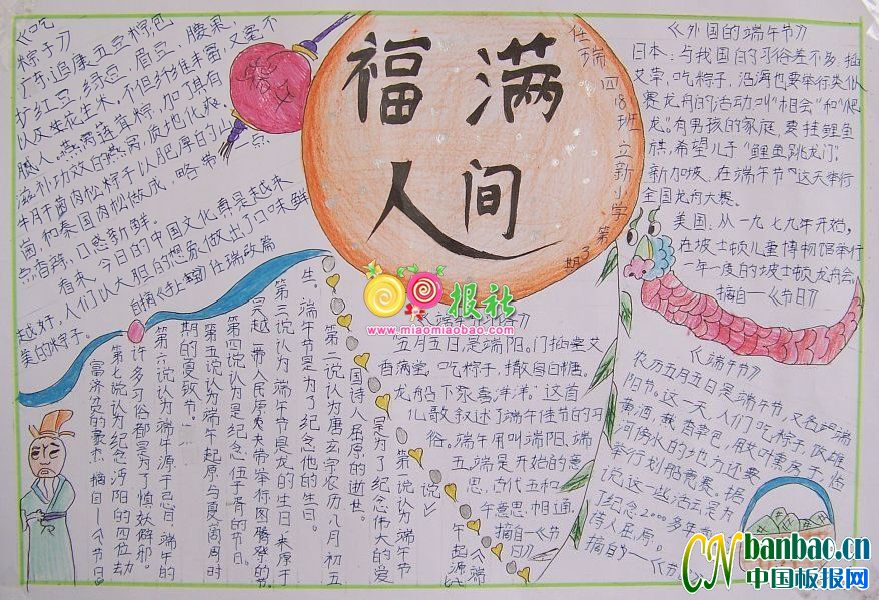 《吃
粽子》
广东,追康五豆粽包
扩红豆,绿豆,眉豆,腰果,
以及生花生米。不但纤维丰富,又毫不
腻人。燕窝莲茸粽,加了具有
滋补功效的燕窝,质地化爽。
牛肝干菌肉松粽子以肥厚的山
菌和泰国肉松做成,略带一点
点香辣,口感新鲜。
看来,今日的中国文化真是越来
越好,人们以大胆的想象做出了口味鲜
美的粽子。
福满
人间
任瑞 四(8)班 立新小学 第3期
《外国的端午节》
日本:与我国的习俗差不多,插
艾草,吃粽子,沿海也要举行类似
赛龙舟的活动叫"相会"和"爬
龙"。有男孩的家庭,要挂鲤鱼
旗,希望儿子"鲤鱼跳龙门"。
新加坡,在端午节这天举行
全国龙舟大赛。
美国:从一九七九年开始,
在波士顿儿童博物馆举行
一年一度的波士顿龙舟会。
摘自《节日》
报社
www.miaomiaobao.com
"五月五日是端阳。门插堂艾
香满堂,吃粽子,撒白糖。
龙船下水喜洋洋。"这首
儿歌叙述了端午佳节的习
俗。端午用叫端阳、端
五,端是开始的意
思,古代五和
午意思相通。
摘自《节
日》
《端午节》
农历五月五日是端午节,又名端
阳节。这一天,人们吃粽子,饮雄
黄酒,戴香草包,用艾叶熏房子,傍
河傍水的地方还要
举行划船竞赛。据
说这一些活动是为
了纪念2000多年前
诗人屈原。
摘自
《节
《端
午起源七
说》
第一说认为端午节
是为了纪念伟大的爱
国诗人屈原的逝世。
第二说认为唐玄宗农历八月初五
生,端午节是为了纪念他的生日。
第三说认为端午节是龙的生日,来原于
吴越一带人民原夷夹带举行图腾祭的节。
第四说认为是纪念伍子胥的节日。
第五说认为端午起原与夏、商、周时
期的"夏致节"。
第六说认为端午源于忌日,端午的
许多习俗都是为了慎妖僻邪。
第七说认为纪念浔阳的四位劫
富济贫的豪杰。摘自《节日》
CN banbao.cn
中国板报网